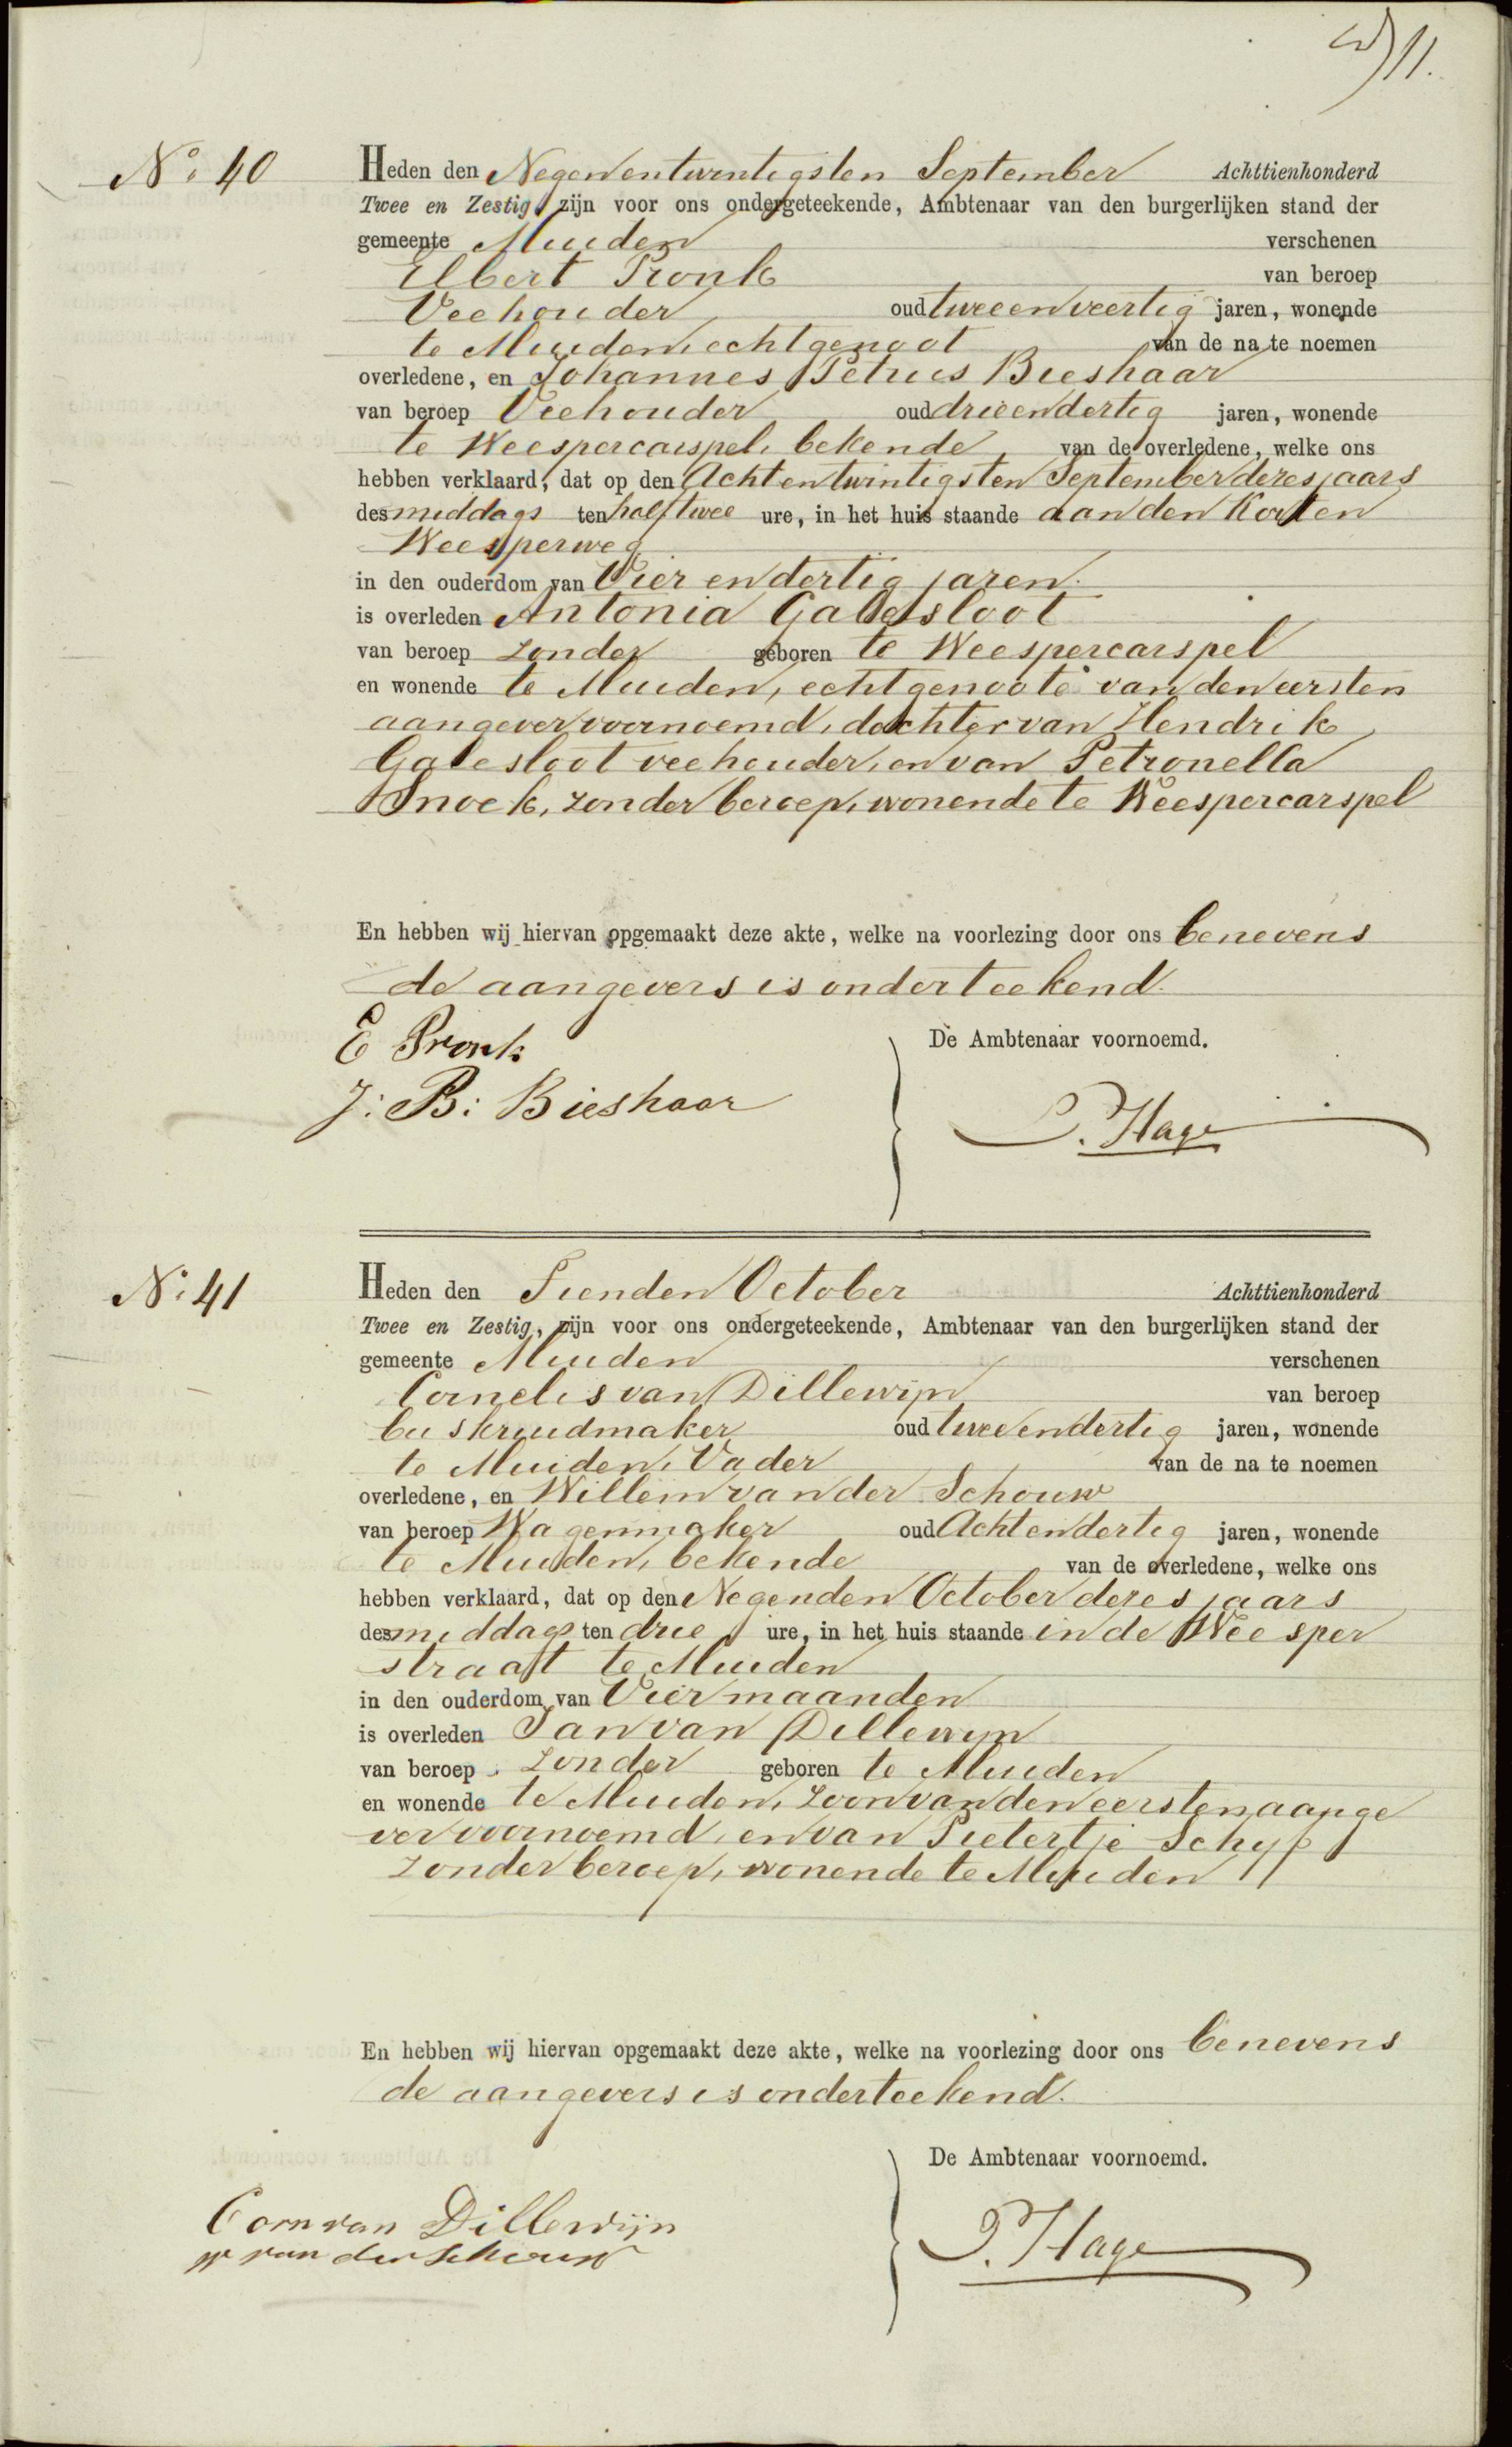 11.
No. 40
Heden den Negenentwintigsten September Achttienhonderd
Twee en Zestig, zijn voor ons ondergeteekende, Ambtenaar van den burgerlijken stand der
gemeente Muiden verschenen
Elbert Pronk van beroep
Veehouder oud tweeenveertig jaren, wonende
te Muiden, echtgenoot van de na te noemen
overledene, en Johannes Petrus Bieshaar
van beroep Veehouder oud drieendertig jaren, wonende
te Weespercarspel, bekende van de overledene, welke ons
hebben verklaard, dat op den Achtentwintigsten September dezes jaars
des middags ten half twee ure, in het huis staande aan den Korten
Weesperweg
in den ouderdom van Vier en dertig jaren.
is overleden Antonia Galesloot
van beroep zonder geboren te Weespercarspel
en wonende te Muiden, echtgenoote van den eersten
aangever voornoemd, dochter van Hendrik
Galesloot veehouder, en van Petronella
Snoek, zonder beroep, wonende te Weespercarspel
En hebben wij hiervan opgemaakt deze akte, welke na voorlezing door ons benevens
de aangevers is onderteekend.
De Ambtenaar voornoemd.
E Pronk
J: P: Bieshaar
P. Hage
No. 41
Heden den Tienden October Achttienhonderd
Twee en Zestig, zijn voor ons ondergeteekende, Ambtenaar van den burgerlijken stand der
gemeente Muiden verschenen
Cornelis van Dillewijn van beroep
buskruidmaker oud tweeendertig jaren, wonende
te Muiden, Vader van de na te noemen
overledene, en Willem van der Schouw
van beroep Wagenmaker oud Achtendertig jaren, wonende
te Muiden, bekende van de overledene, welke ons
hebben verklaard, dat op den Negenden October dezes jaars
des middags ten drie ure, in het huis staande in de Weesper
straat te Muiden
in den ouderdom van Vier maanden
is overleden Jan van Dillewijn
van beroep zonder geboren te Muiden
en wonende te Muiden, zoon van den eersten aange
ver voornoemd, en van Pietertje Schijf
zonder beroep, wonende te Muiden
En hebben wij hiervan opgemaakt deze akte, welke na voorlezing door ons benevens
de aangevers is onderteekend.
De Ambtenaar voornoemd.
Corn van Dillewijn
W van der Schouw
P. Hage